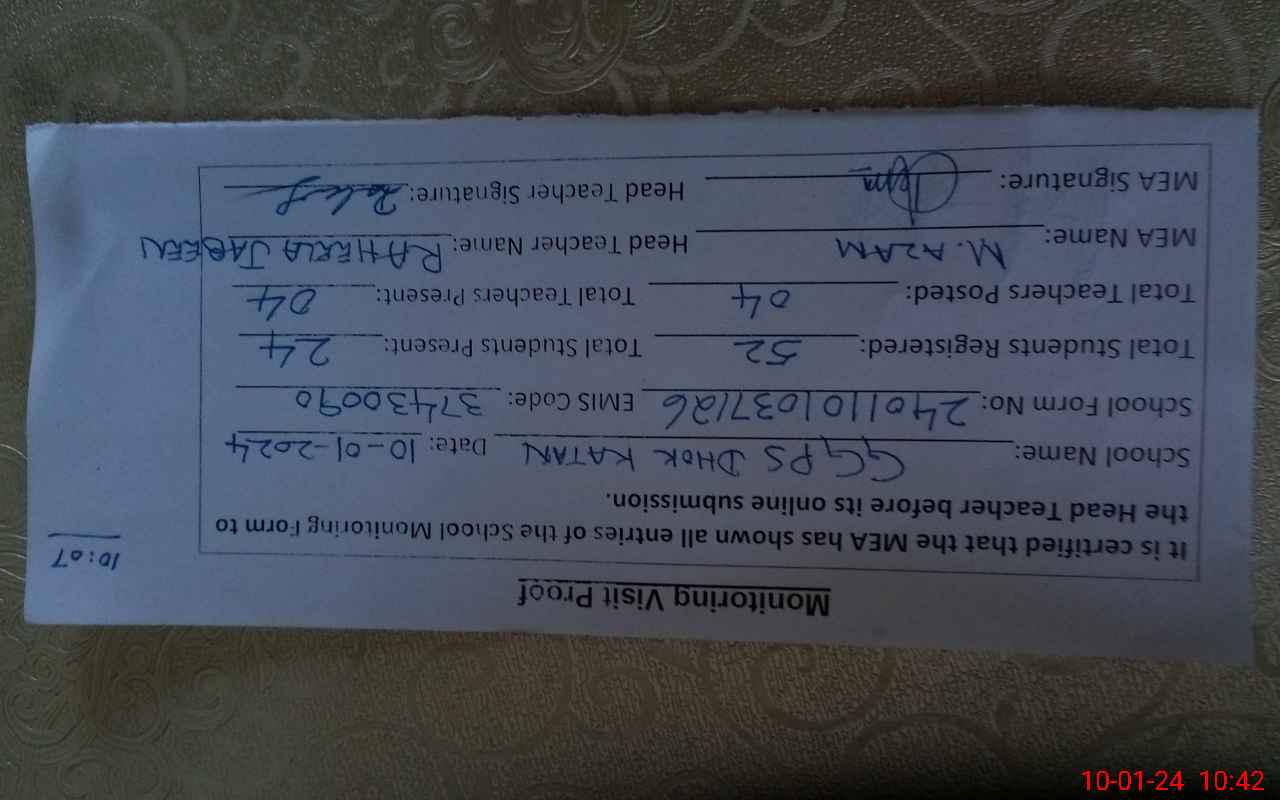 Monitoring Visit Proof
10:07
It is certified that the MEA has shown all entries of the School Monitoring Form to
the Head Teacher before its online submission.
School Name: GGPS DHOK KATAN Date: 10-01-2024
School Form No: 2401101037126 EMIS Code: 37430090
Total Students Registered: 52 Total Students Present: 24
Total Teachers Posted: 04 Total Teachers Present: 04
MEA Name: M. AZAM Head Teacher Name: RAHEELA JABEEN
MEA Signature: Head Teacher Signature:
10-01-24 10:42